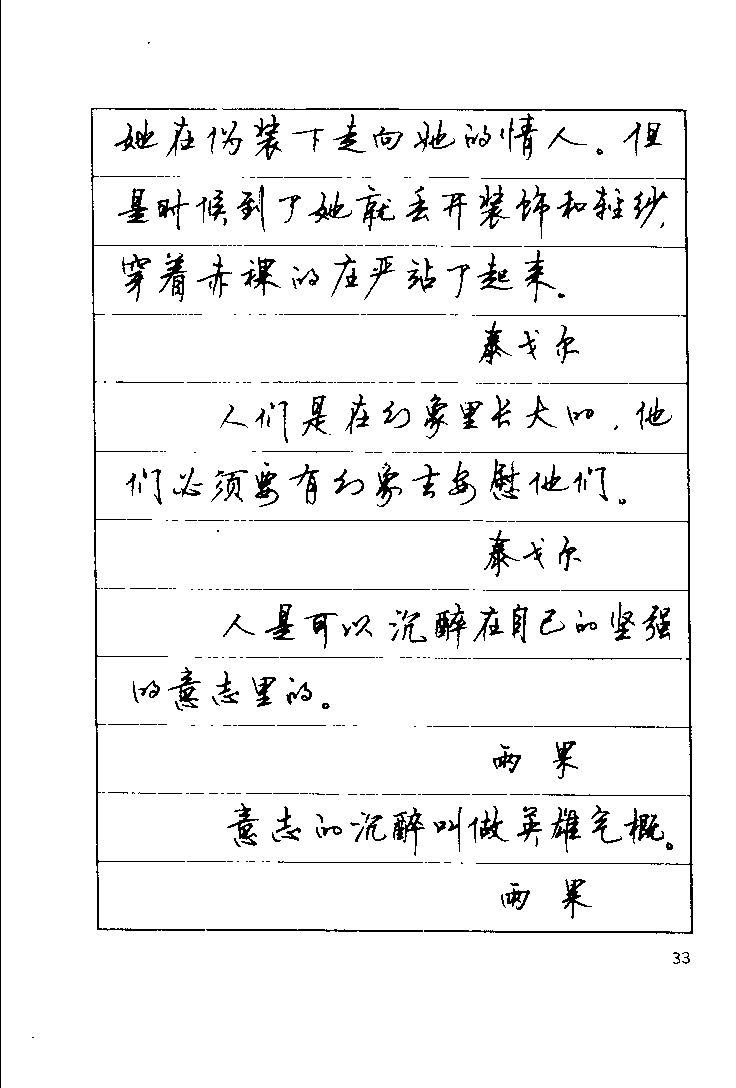 她在伪装下走向她的情人。但
是时候到了她就丢开装饰和轻纱,
穿着赤裸的庄严站了起来。
泰戈尔
人们是在幻象里长大的,他
们必须要有幻象去安慰他们。
泰戈尔
人是可以沉醉在自己的坚强
的意志里的。
雨果
意志的沉醉叫做英雄气概。
雨果
33